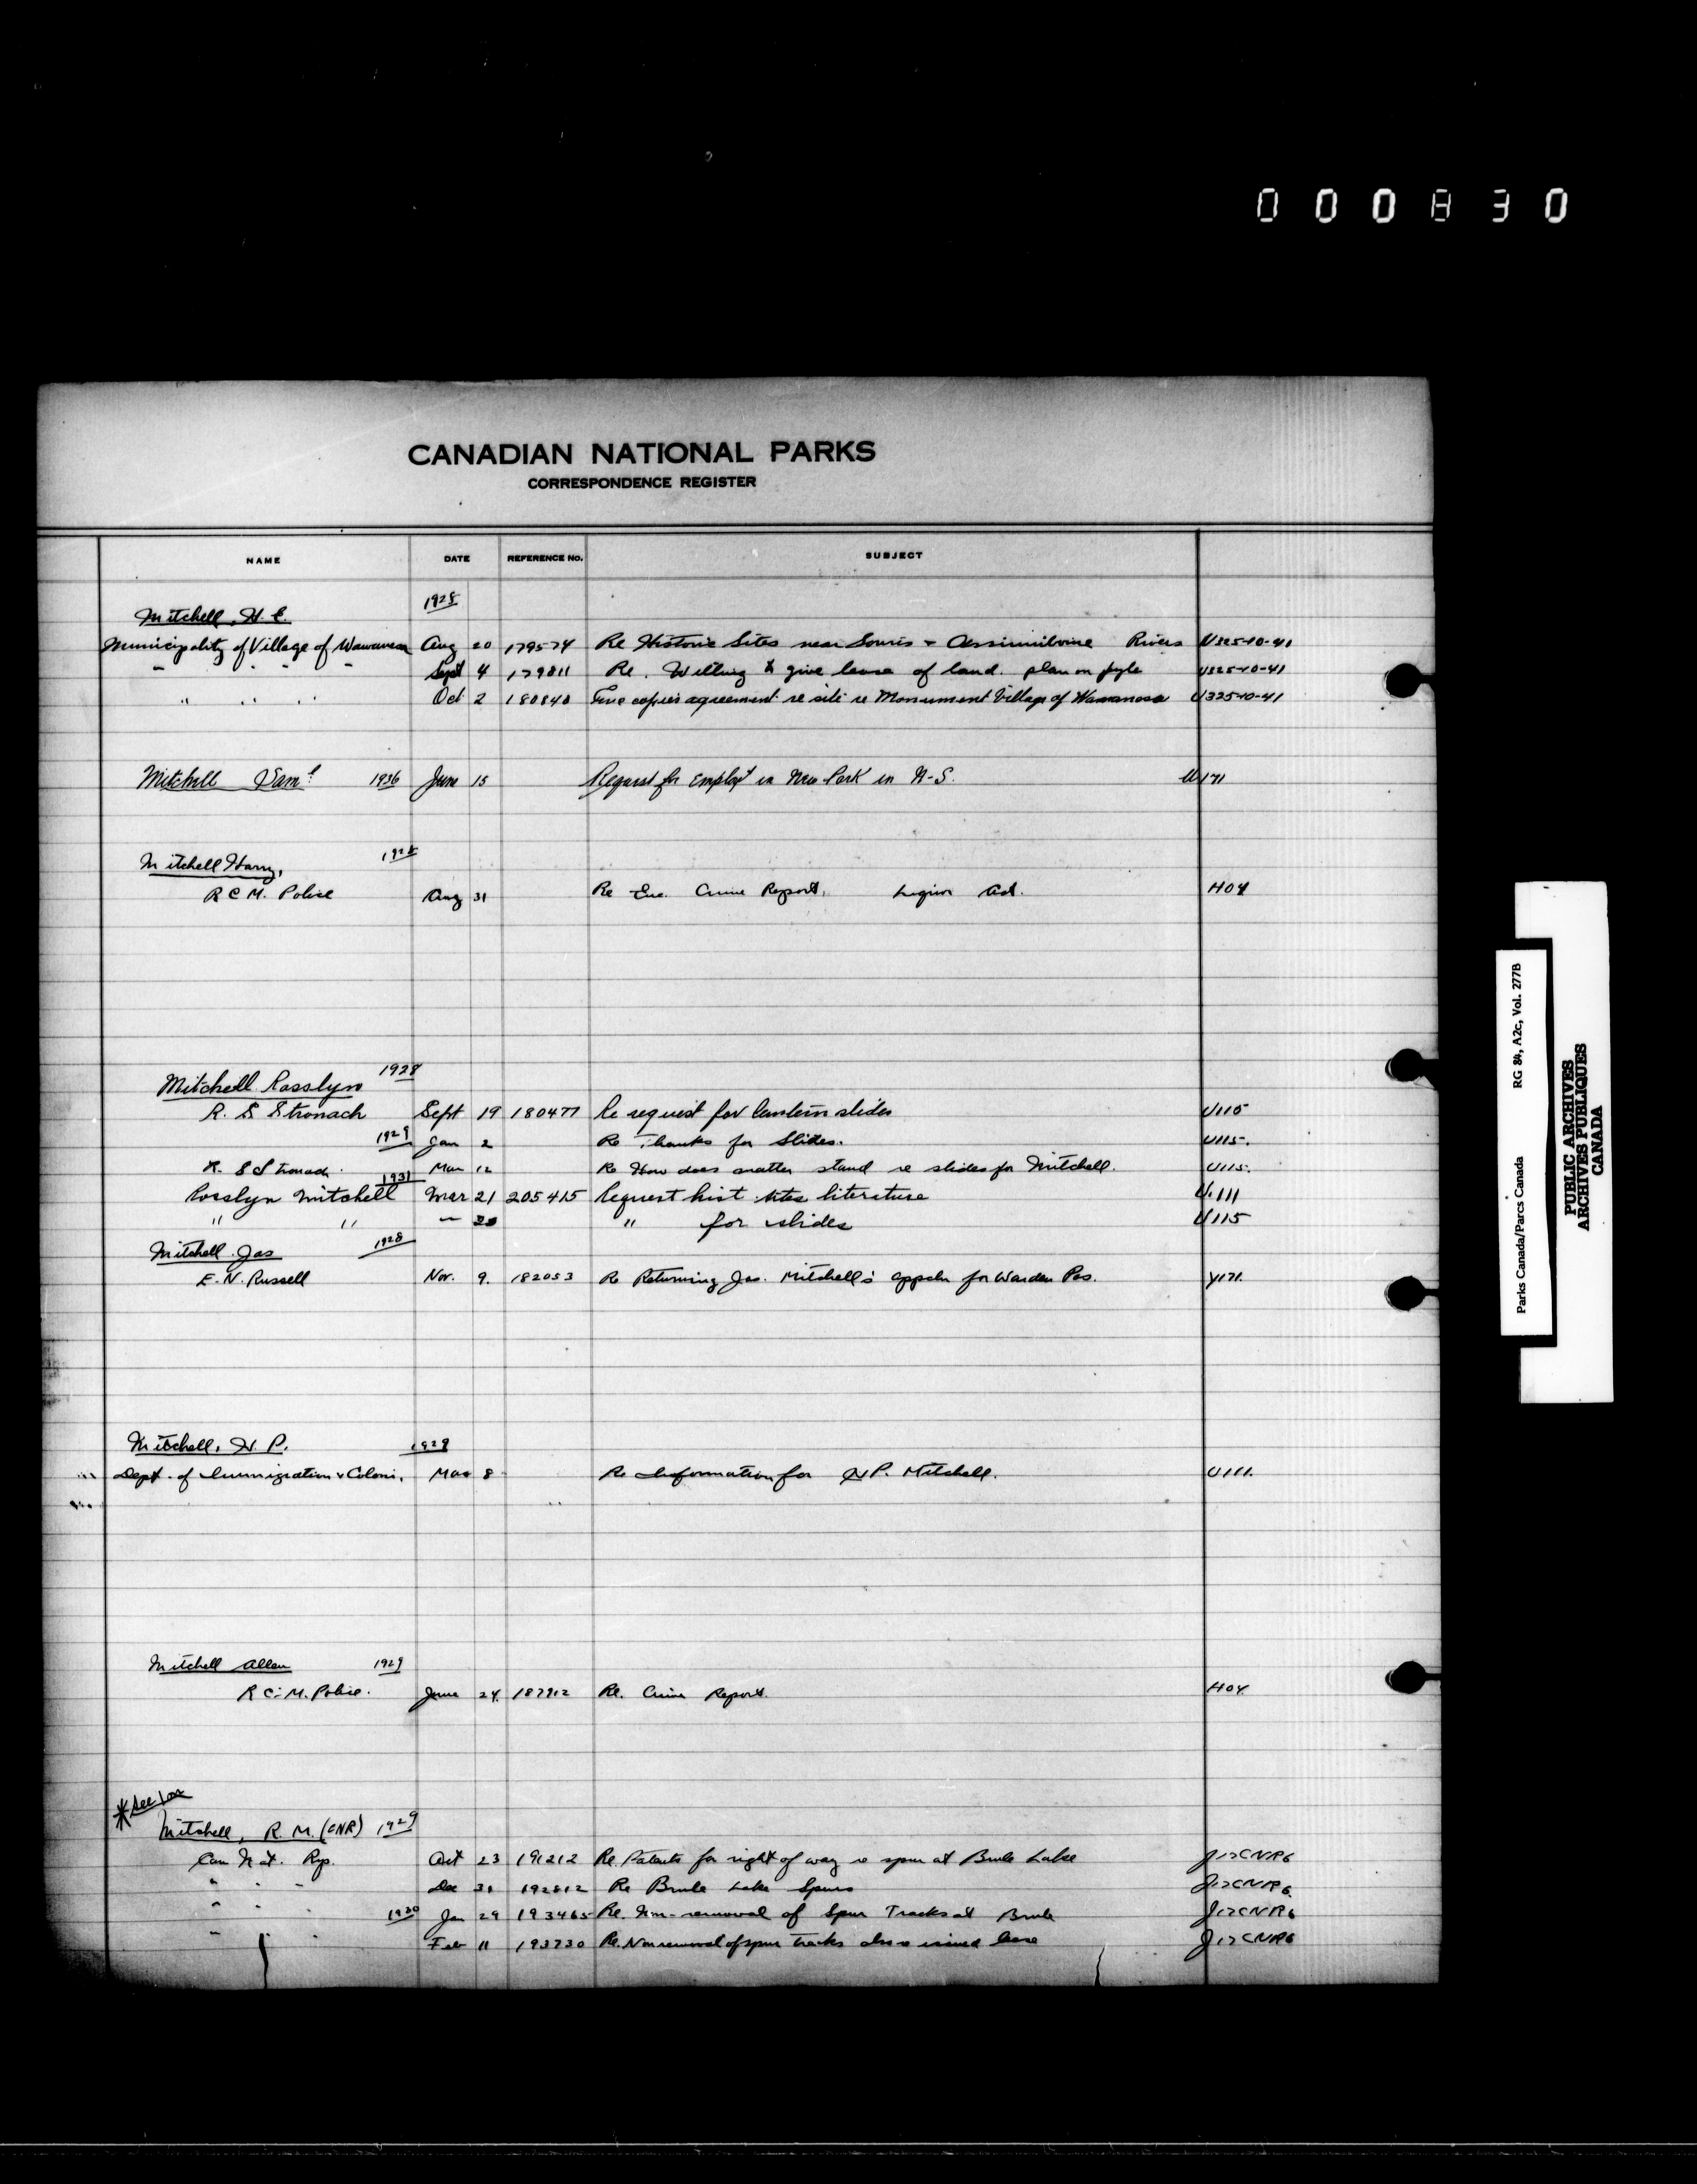 000830
CANADIAN NATIONAL PARKS
CORRESPONDENCE REGISTER
NAME DATE REFERENCE No. SUBJECT
1928
Mitchell, H. E.
Municipality of Village of Wawanesa Aug 20 179574 Re Historic Sites near Souris + Assiniboine Rivers U325-10-41
" " " " Sept 4 179811 Re. Willing to give lease of land. plan on fyle U325-10-41
" " " " Oct 2 180840 copies agreement re site re Monument Village of Wawanesa U325-10-41
Mitchell Saml 1936 June 15 Request for Employt in New Park in N-S. U171
Mitchell Harry, 1928
R C M. Police Aug 31 Re Enc. Crime Report. Liquor Act. H04
Mitchell Rosslyn 1928
R. S Stronach Sept 19 180477 Re request for lantern slides U115
1929 Jan 2 Re Thanks for Slides. U115.
R. S Stronach. Mar 12 Re How does matter stand re slides for Mitchell. U115.
1931
Rosslyn Mitchell Mar 21 205415 Request hist sites literature U.111
" " " " for slides U115
Mitchell Jas 1928
E. N. Russell Nov. 9. 182053 Re Returning Jas. Mitchell's appcln for Warden Pos. Y171.
Mitchell, N. P. 1929
Dept. of Immigration & Coloni. Mar 8 Re Information for N P. Mitchell. U111.
Mitchell Allen 1929
R C. M. Police. June 24. 187912 Re. Crime Report. H04
*See
Mitchell, R. M. (CNR) 1929
Can Nat. Ryp. Oct 23 191212 Re. Patents for right of way re spur at Brule Lake J17CNR6
" " " Dec 31 192812 Re Brule Lake Spurs J17CNR6
" " " 1930 Jan 29 193465 Re. Non-removal of Spur Tracks at Brule J17CNR6
" " " Feb 11 193730 Re. Non removal of spur tracks also re issued lease J17CNR6
Parks Canada/Parcs Canada RG 84, A2c, Vol. 277B
PUBLIC ARCHIVES
ARCHIVES PUBLIQUES
CANADA